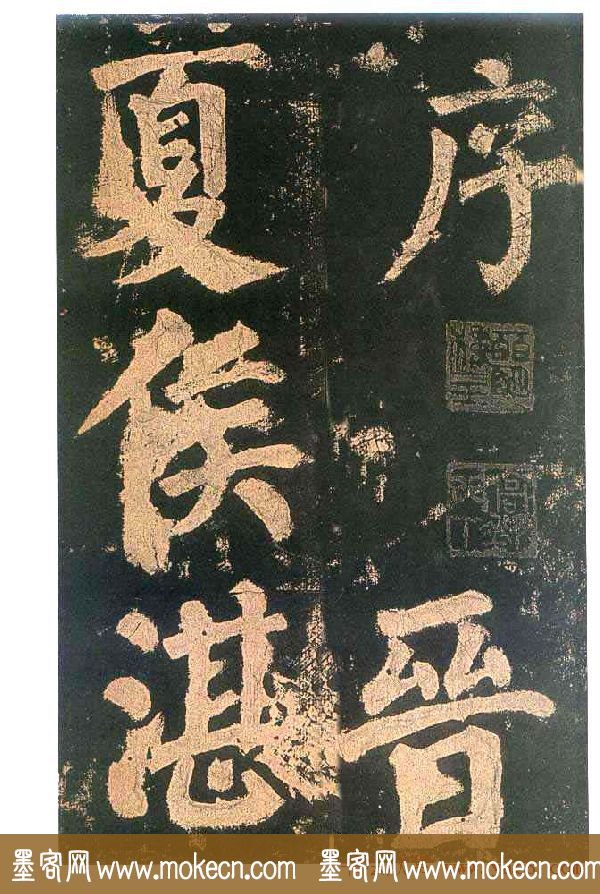 序 晉
夏侯湛
墨客网 www.mokecn.com 墨客网 www.mokecn.com